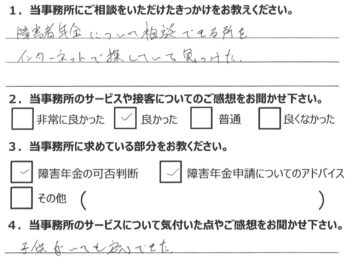 1．当事務所にご相談をいただけたきっかけをお教えください。
障害者年金について相談できる所を
インターネットで探していて見つけた。
2．当事務所のサービスや接客についてのご感想をお聞かせ下さい。
非常に良かった ✓ 良かった 普通 良くなかった
3．当事務所に求めている部分をお教えください。
✓ 障害年金の可否判断 ✓ 障害年金申請についてのアドバイス
その他 （ ）
4．当事務所のサービスについて気付いた点やご感想をお聞かせ下さい。
子供がいても